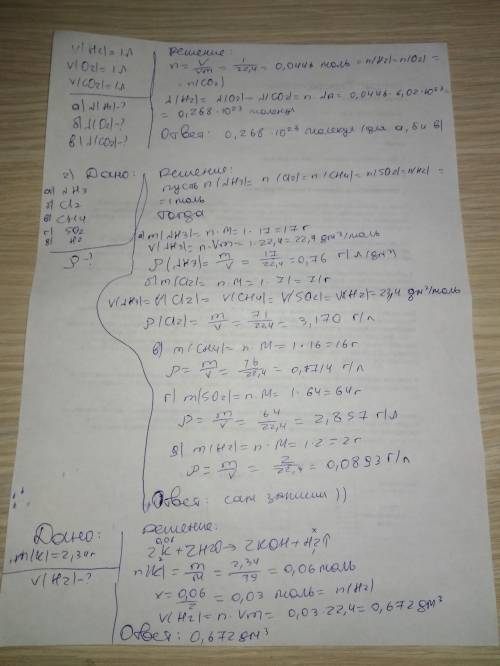 V(H2)=1л
V(O2)=1л
V(CO2)=1л
а) N(H2)-?
б) N(O2)-?
в) N(CO2)-?
Решение:
n = V/Vm = 1/22,4 = 0,0446 моль = n(H2)=n(O2) =
= n(CO2)
N(H2)= N(O2)= N(CO2)= n·NA= 0,0446·6,02·10²³=
= 0,268·10²³ молекул
Ответ: 0,268·10²³ молекул (для а, б и в)
2) Дано:
а) NH3
б) Cl2
в) CH4
г) SO2
д) H2
ρ-?
Решение:
пусть n(NH3)= n(Cl2)=n(CH4)=n(SO2)=n(H2) =
=1моль
Тогда
а) m(NH3)= n·M= 1·17=17г
V(NH3)= n·Vm= 1·22,4=22,4 дм³/моль
ρ(NH3)= m/V = 17/22,4 = 0,76 г/л (дм³)
б) m(Cl2)= n·M= 1·71= 71г
V(NH3)= V(Cl2)= V(CH4)= V(SO2)= V(H2)=22,4 дм³/моль
ρ(Cl2)= m/V = 71/22,4 = 3,170 г/л
в) m(CH4)= n·M= 1·16=16г
ρ= m/V = 16/22,4 = 0,714 г/л
г) m(SO2)= n·M= 1·64=64г
ρ= m/V = 64/22,4 = 2,857 г/л
д) m(H2)= n·M= 1·2=2г
ρ= m/V = 2/22,4 = 0,0893 г/л
Ответ: сам запиши ))
Дано:
m(K)=2,34г
V(H2)-?
Решение:
0,06 x
2K+2H2O→2KOH+H2↑
n(K)= m/M = 2,34/39 = 0,06 моль
x= 0,06/2 = 0,03 моль= n(H2)
V(H2)= n·Vm= 0,03·22,4=0,672дм³
Ответ: 0,672дм³